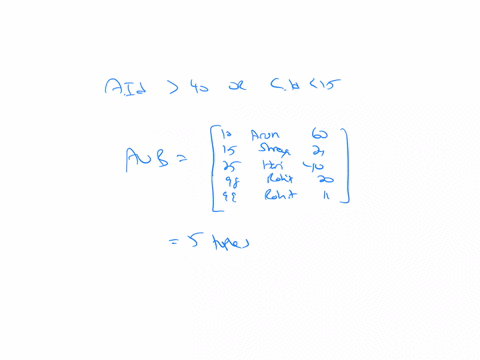 A.Id > 40 or C.Id < 15
A∪B =
10 Arun 60
15 Shreya 24
25 Hari 40
98 Rohit 20
99 Rohit 11
= 5 tuples